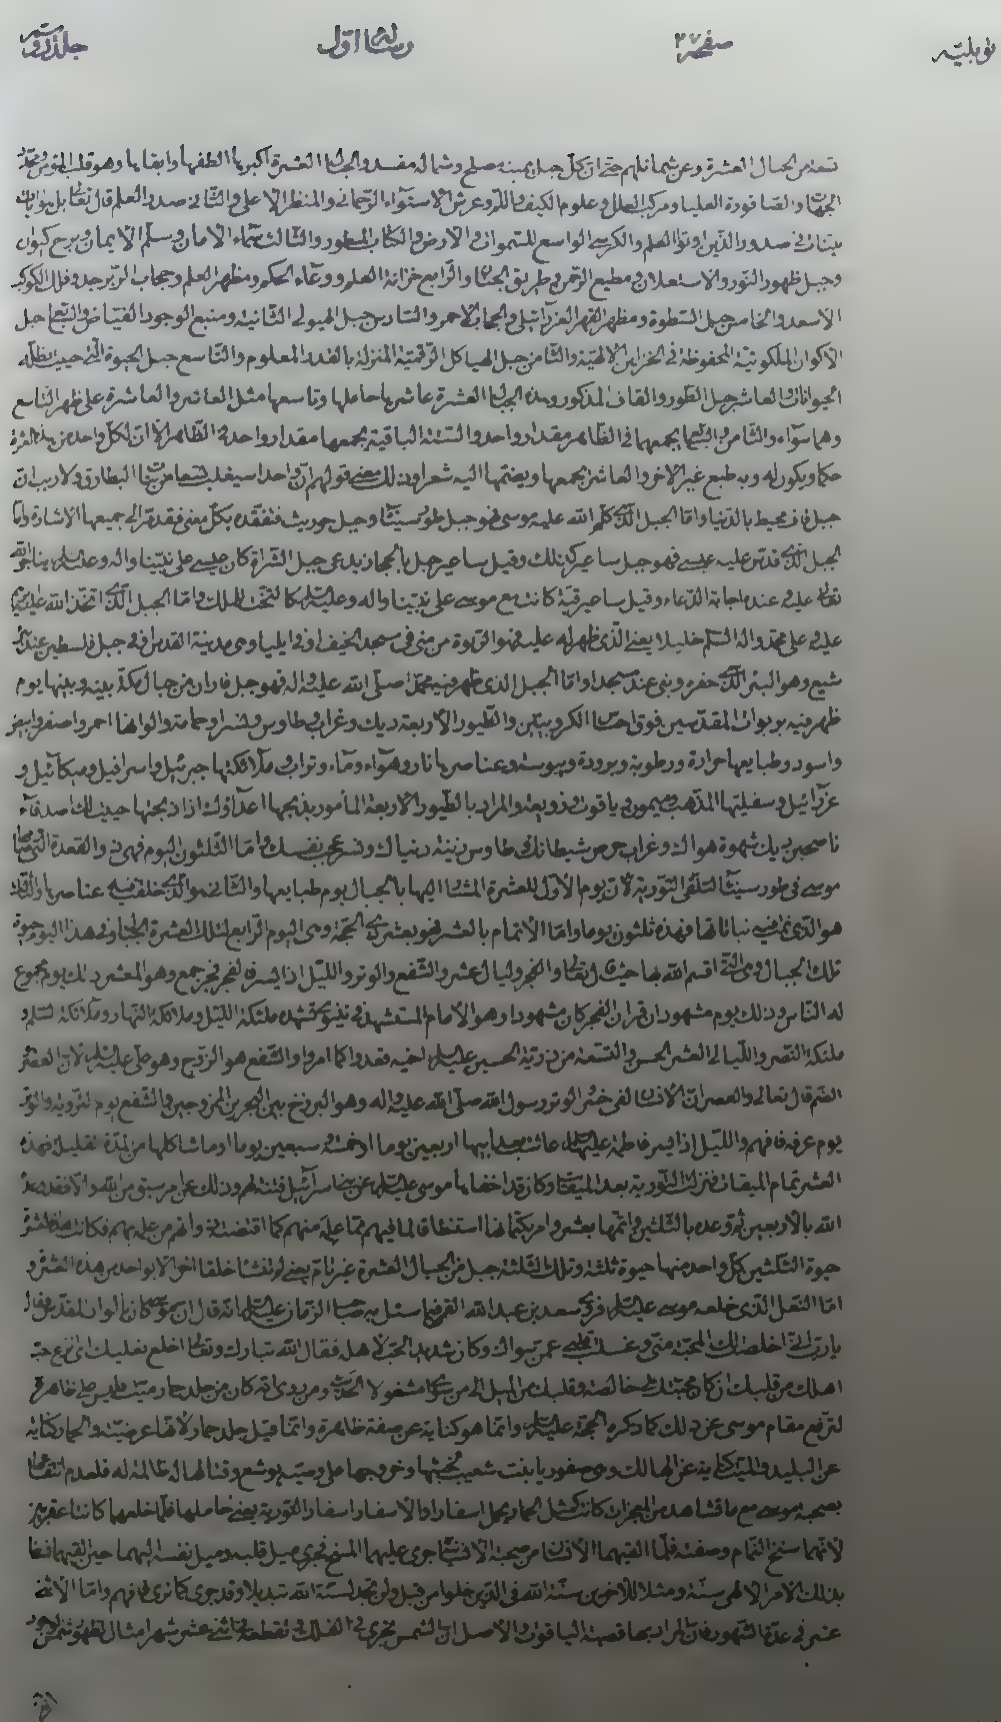 نوبلية صفحه ٢٧ رسالة اول جلد
تسعة من الجبال العشرة وعن شمائلهم حتى ان كل جبل يمينه مصلح وشماله مفسد والجبال العشرة اكبرها الطفها وابقاها وهو قلب المؤمن
الجهات والصاقورة العليا ومركب العلل وعلوم الكيف والذر وعرش الاستواء الرحماني والمنظر الاعلى والثاني صدر العلم قال تعالى بل هو ايات
بينات في صدور الذين اوتوا العلم والكرسي الواسع للسموات والارض والكتاب المسطور والثالث سماء الامان وسلم الايمان وبرج كيوان
وجبل ظهور النور والاستعلان ومطيع الرحمن وطريق الجنان والرابع خزانة العلم ووعاء الحكم ومظهر العلم وحجاب الزبرجد وفلك الكوكب
الاسعد والخامس جبل السطوة ومظهر القهر العزرائيلي والحجاب الاحمر والسادس جبل الهيولى الثانية ومنبع الوجود الفياض والسابع جبل
الاكوان الملكوتية المحفوظة في الخزاين الالهية والثامن جبل الهياكل الرقمية المنزلة بالقدر المعلوم والتاسع جبل الحيوة التي حييت بظله
الحيوانات والعاشر جبل الطور والقاف المذكور وهذه الجبال العشرة عاشرها حاملها وتاسعها مثل العاشر والعاشرة على ظهر التاسع
وهما سواء والثامن والتسعة يجمعهما في الظاهر مقدار واحد والستة الباقية يجمعها مقدار واحد في الظاهر الا ان لكل واحد من هذه العشرة
حكما ويكون له وبه طبع غير الاخر والعاشر يجمعها ويضمها اليه شعرا وذلك معنى قولهم ان واحدا سيغلب تسعا من بنات البطارق ولا ريب ان
جبل قاف محيط بالدنيا واما الجبل الذي كلم الله عليه موسى فهو جبل طور سينا وجبل حوريث فتفقده بكل معنى فقد مر الى جميعها الاشارة واما
الجبل الذي قدس عليه عيسى فهو جبل ساعير كذلك وقيل ساعير جبل بالحجاز يدعى جبل الشراة كان عيسى على نبينا واله وعليه السلم يناجي الله
تعالى عليه وعنده اجابة الدعاء وقيل ساعير قبة كانت مع موسى على نبينا واله وعليه السلم كالتخت للملك واما الجبل الذي اتخذ الله عليه
عليه وعلى محمد واله السلم خليلا يعني الذي ظهر له عليه فهو الذروة من منى في مسجد الخيف او في ايليا وهي مدينة القدس او في جبل فلسطين عند بئر
شيع وهو البئر الذي حفره وبنى عنده مسجدا واما الجبل الذي ظهر فيه محمد صلى الله عليه واله فهو جبل فاران من جبال مكة بينه وبينها يوم
ظهر فيه بربوات المقدسين فوق احساس الكروبيين والطيور الاربعة ديك وغراب وطاوس ونسر او حمامة والوانها احمر واصفر وابيض
واسود وطبايعها حرارة ورطوبة وبرودة ويبوسة وعناصرها نار وهواء وماء وتراب وملائكتها جبرئيل واسرافيل وميكائيل و
عزرائيل وسفليتها المذهب وميمون وياقوت وزوبعة والمراد بالطيور الاربعة المأمور بذبحها اعداؤك اذا ذبحتها حييت لك اصدقاء
ناصحين ديك شهوة هواك وغراب حرص شيطانك وطاوس زينة دنياك ونسر عجب نفسك واما الثلثون اليوم فهي ذو القعدة التي صامها
موسى في طور سينا لتلقى التورية لان يوم الاول للعشرة المشار اليها بالجبال يوم طبايعها والثاني هو الذي خلقت فيه عناصرها والثالث
هو الذي نما فيه نباتاتها فهذه ثلثون يوما واما الاتمام بالعشر فهو بعشر ذي الحجة وهي اليوم الرابع لتلك العشرة الجبال وفي هذا اليوم حيوة
تلك الجبال وهي التي اقسم الله بها حيث قال تعالى والفجر وليال عشر والشفع والوتر والليل اذا يسر فالفجر فجر جمع وهو المعشر ذلك يوم مجموع
له الناس وذلك يوم مشهود ان قران الفجر كان مشهودا وهو الامام المستشهد في نينوى تشهده ملئكة الليل وملائكة النهار وملائكة التسليم و
ملئكة النصر والليالي العشر الحسن والتسعة من ذرية الحسين عليه السلم اخيه فقعدوا كما امروا والشفع هو الزوج وهو علي عليه السلم لانه العقد
الضم قال تعالى والعصر ان الانسان لفي خسر والوتر رسول الله صلى الله عليه واله وهو البرزخ بين البحرين المزوجين والشفع يوم التروية والوتر
يوم عرفة فافهم والليل اذا يسر فاطمة عليها السلم عاشت بعد ابيها اربعين يوما او خمسة وسبعين يوما او ما شاكلها من المدة القليلة فهذه
العشر تمام الميقات فنزلت التورية بعد الميقات وكان قد اخفاها موسى عليه السلم عن بني اسرائيل فتنة لهم وذلك عن امر سبق من الله والا فقد وعده
الله بالاربعين ثم وعده بالثلثين واتمها بعشر وامر بكتمانها استنطاقا لما فيهم مما علمه منهم كما اقتضته ذواتهم من علمه بهم فكانت هذه العشر
حيوة الثلثين بكل واحد منها حيوة ثلثة وتلك الثلثة جبل من الجبال العشرة غير تام يعني لم تنشأ خلقا اخر الا بواحد من هذه العشر و
اما النعل الذي خلعه موسى عليه السلم فروى سعد بن عبد الله القمي فيما سئل به صاحب الزمان عليه السلم انه قال ان موسى كان بالواد المقدس فقال
يا رب اني اخلصت لك المحبة مني وغسلت قلبي عمن سواك وكان شديد الحب لاهله فقال الله تبارك وتعالى اخلع نعليك اي انزع حب
اهلك من قلبك ان كانت محبتك لي خالصة وقلبك من الميل الى من سواي مشغولا الحديث ومن روى انه كان من جلد حمار ميت فليس على ظاهره
لترفع مقام موسى عن ذلك كما ذكره الحجة عليه السلم وانما هو كناية عن صفة ظاهرة وانما قيل جلد حمار لانها عرضية والحمار كناية
عن البليد والميت كناية عن الهالك وهي صفوريا بنت شعيب لخبثها وخروجها على وصيه يوشع وقتالها له ظالمة له فلعدم انتفاعها
بصحبة موسى مع ما تشاهد من المعجزات كانت كمثل الحمار يحمل اسفارا والاسفار اسفار التورية يعني حاملها فلما خلعهما كانتا عقربين
لانهما سنخ النمام وصفته فلما القيهما الانسان من صحبة الانسان جرى عليهما المسخ فجرى ميل قلبه وميل نفسه اليهما حين القيهما فعا
بذلك الامر الالهي سنة ومثلا للاخرين سنة الله في الذين خلوا من قبل ولن تجد لسنة الله تبديلا وقد جرى كما ترى فافهم واما الاثني
عشر في عدة الشهور فان المراد بها قصبة الياقوت والاصل ان الشمس تجري في الفلك في تقطعه في اثني عشر شهرا مثال لظهور شمس